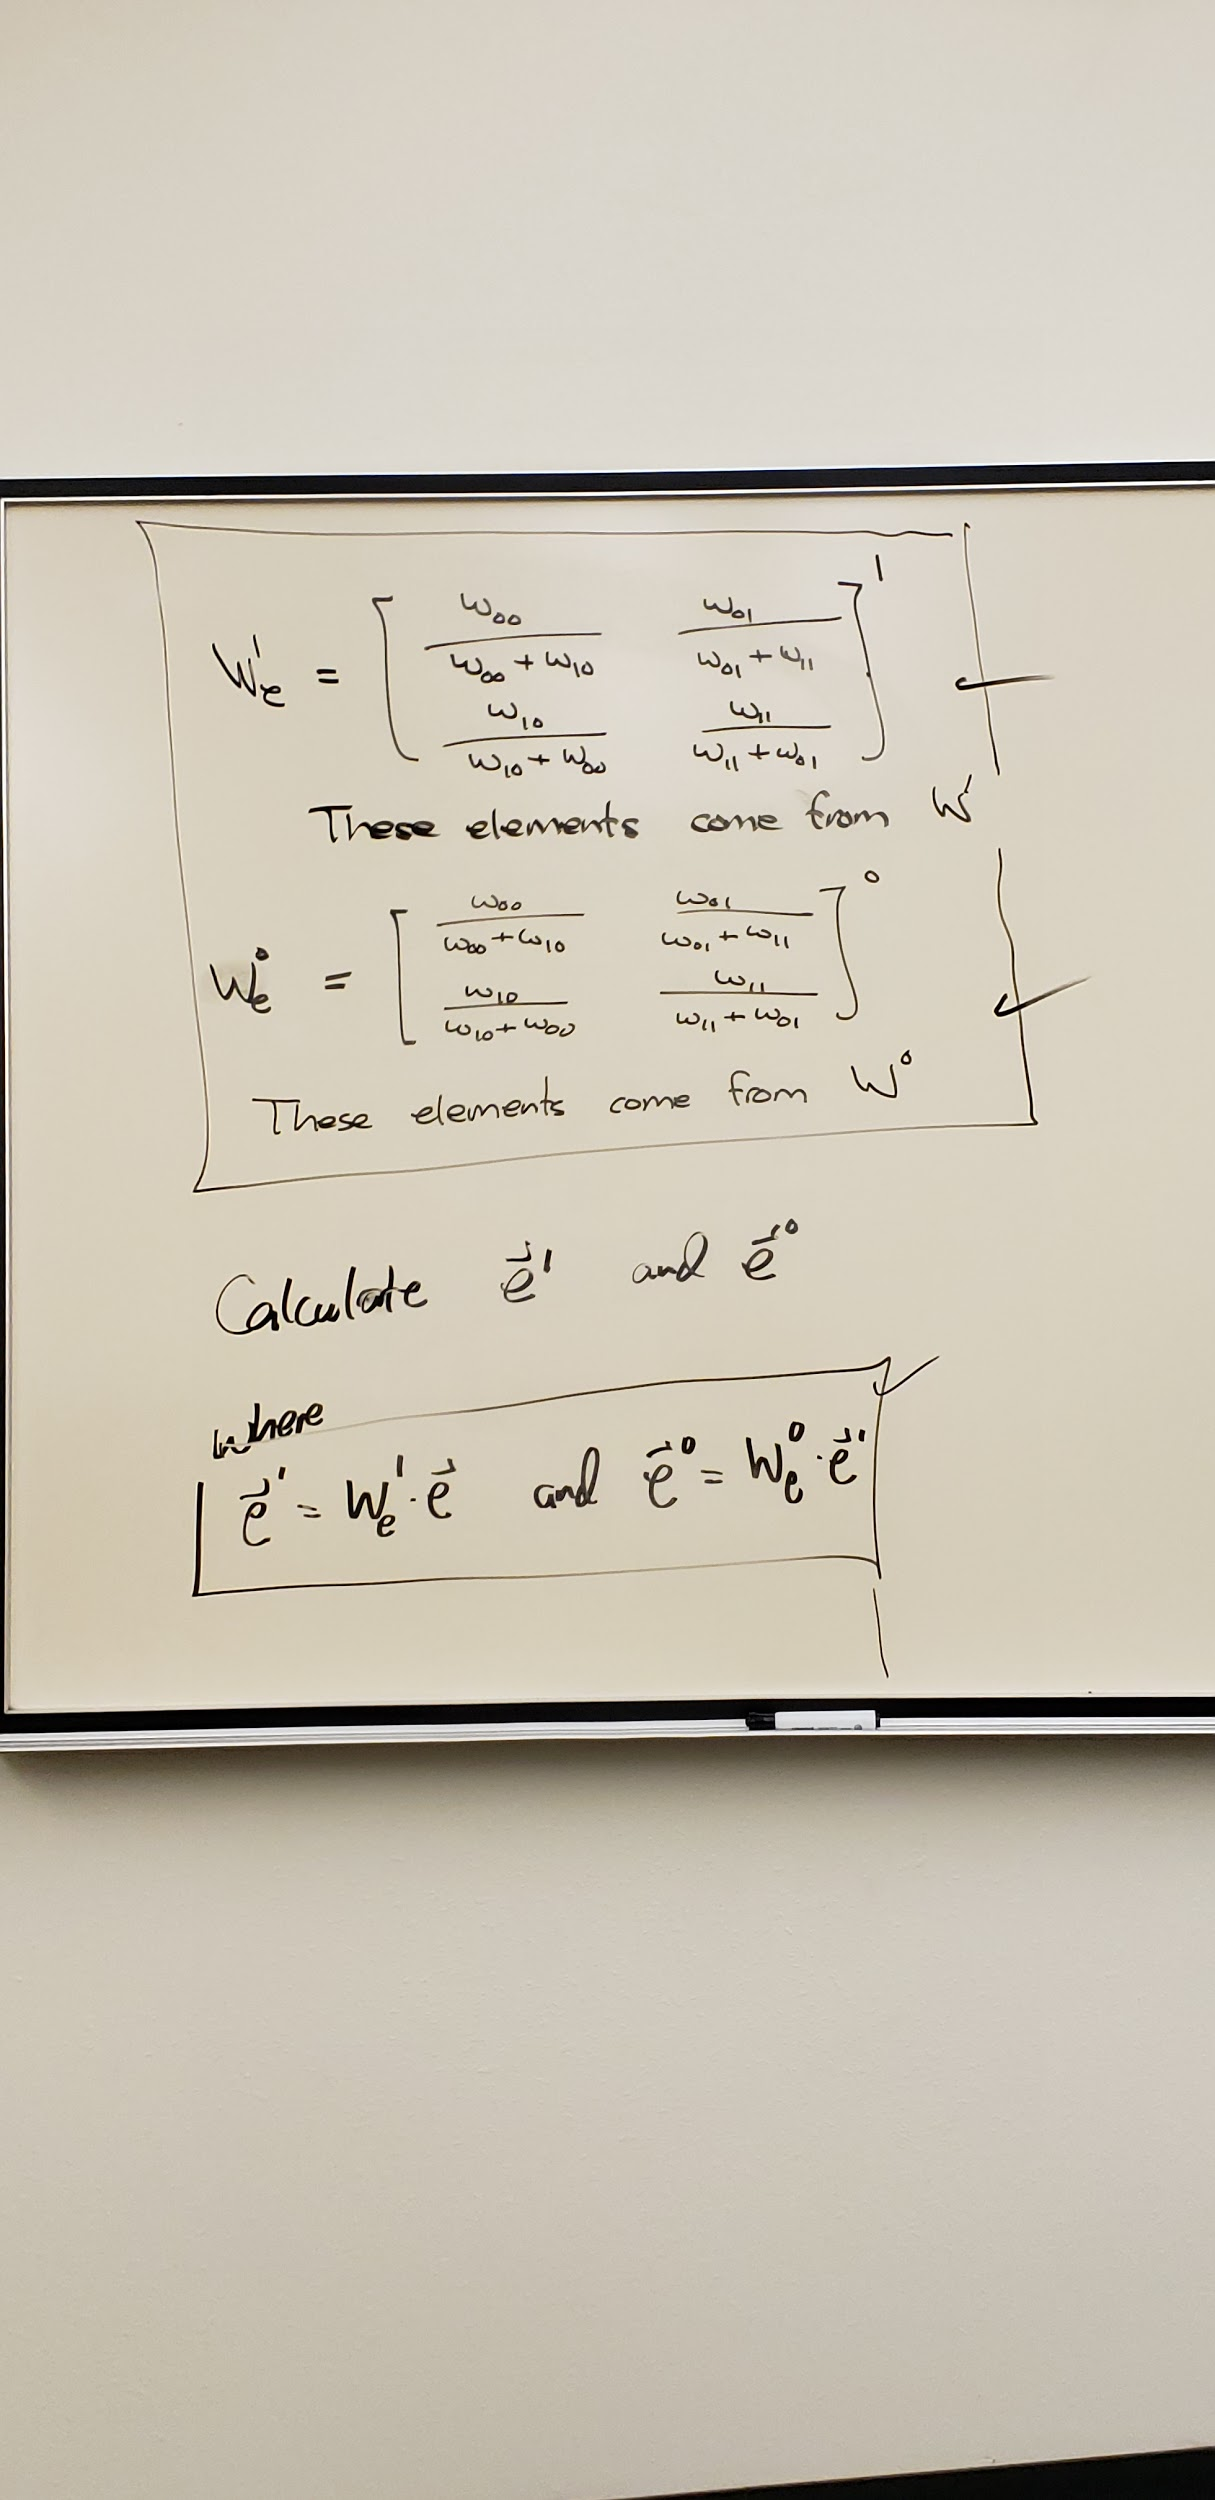 W¹ₑ = [ w₀₀/(w₀₀ + w₁₀)  w₀₁/(w₀₁ + w₁₁) ]¹
[ w₁₀/(w₁₀ + w₀₀)  w₁₁/(w₁₁ + w₀₁) ]
These elements come from W¹
W⁰ₑ = [ w₀₀/(w₀₀ + w₁₀)  w₀₁/(w₀₁ + w₁₁) ]⁰
[ w₁₀/(w₁₀ + w₀₀)  w₁₁/(w₁₁ + w₀₁) ]
These elements come from W⁰
Calculate e⃗¹ and e⃗⁰
where
e⃗¹ = W¹ₑ · e⃗ and e⃗⁰ = W⁰ₑ · e⃗¹